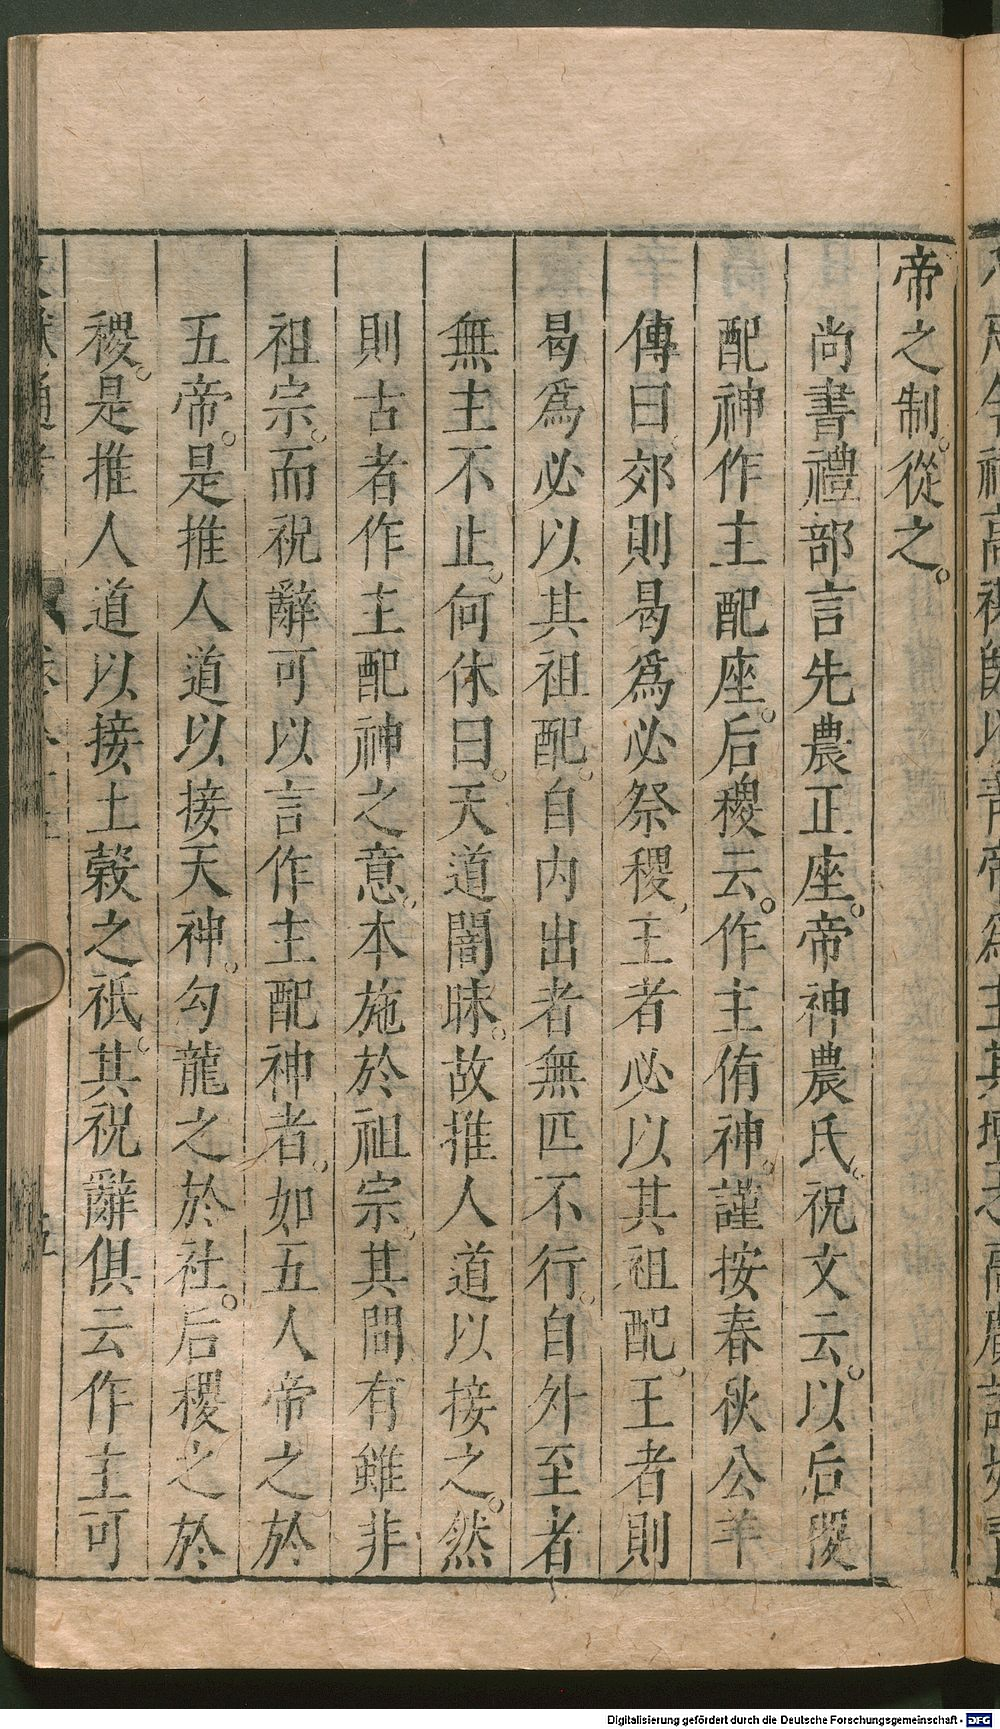 帝之制。從之。
尚書禮部言先農正座。帝神農氏。祝文云。以后稷
配神作主配座。后稷云。作主侑神。謹按春秋公羊
傳曰郊則曷爲必祭稷。王者必以其祖配。王者則
曷爲必以其祖配。自内出者無匹不行。自外至者
無主不止。何休曰。天道闇昧。故推人道以接之。然
則古者作主配神之意。本施於祖宗。其間有雖非
祖宗。而祝辭可以言作主配神者。如五人帝之於
五帝。是推人道以接天神。勾龍之於社。后稷之於
稷。是推人道以接土榖之祇。其祝辭俱云作主可
Digitalisierung gefördert durch die Deutsche Forschungsgemeinschaft - DFG